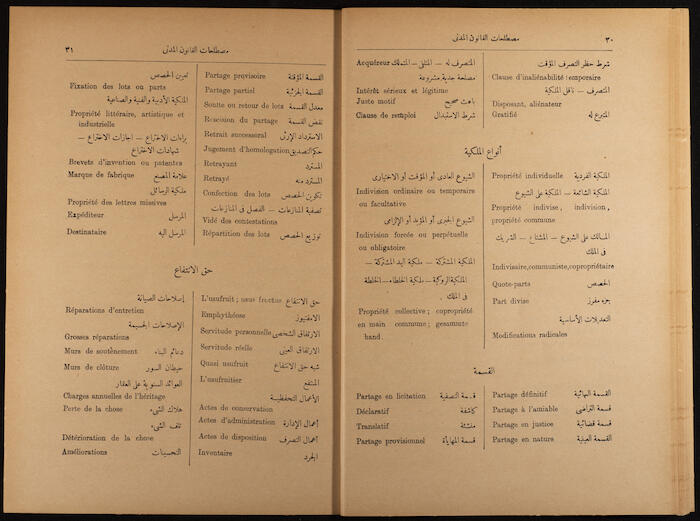 ٣٠
مصطلحات القانون المدنى
شرط حظر التصرف المؤقت
Clause d'inaliénabilité temporaire
المتصرف — ناقل الملكية
Disposant, aliénateur
Gratifié المتبرع له
Acquéreur المتصرف له — المتلقى — المتملك
مصلحة جدية مشروعة
Intérêt sérieux et légitime
Juste motif باعث صحيح
Clause de remploi شرط الاستبدال
أنواع الملكية
Propriété individuelle الملكية الفردية
الملكية الشائعة — الملكية على الشيوع
Propriété indivise, indivision,
propriété commune
المالك على الشيوع — المشتاع — الشريك
فى الملك
Indivissaire, communiste, copropriétaire
Quote-parts الحصص
Part divise جزء مفرز
التعديلات الأساسية
Modifications radicales
الشيوع العادى أو المؤقت أو الاختيارى
Indivision ordinaire ou temporaire
ou facultative
الشيوع الجبرى أو المؤبد أو الإلزامى
Indivision forcée ou perpétuelle
ou obligatoire
الملكية المشتركة — ملكية اليد المشتركة —
الملكية الروكية — ملكية الخلطاء — الخلطة
فى الملك
Propriété collective; copropriété
en main commune; gesamute
hand.
القسمة
Partage définitif القسمة النهائية
Partage à l'amiable قسمة التراضى
Partage en justice قسمة قضائية
Partage en nature القسمة العينية
Partage en licitation قسمة التصفية
Déclaratif كاشفة
Translatif منشئة
Partage provisionnel قسمة المهايأة
مصطلحات القانون المدنى
٣١
Partage provisoire القسمة المؤقتة
Partage partiel القسمة الجزئية
Soulte ou retour de lots معدل القسمة
Rescision du partage نقض القسمة
Retrait successoral الاسترداد الإرثى
Jugement d'homologation حكم التصديق
Retrayant المسترد
Retrayé المسترد منه
Confection des lots تكوين الحصص
تصفية المنازعات — الفصل فى المنازعات
Vidé des contestations
Répartition des lots توزيع الحصص
تعيين الحصص
Fixation des lots ou parts
الملكية الأدبية والفنية والصناعية
Propriété littéraire, artistique et
industrielle
براءات الاختراع — اجازات الاختراع —
شهادات الاختراع
Brevets d'invention ou patentes
Marque de fabrique علامة المصنع
ملكية الرسائل
Propriété des lettres missives
Expéditeur المرسل
Destinataire المرسل اليه
حق الانتفاع
L'usufruit; usus fructus حق الانتفاع
Emphythéose الامفتيوز
Servitude personnelle الارتفاق الشخصى
Servitude réelle الارتفاق العينى
Quasi usufruit شبه حق الانتفاع
L'usufruitier المنتفع
الأعمال التحفظية
Actes de conservation
Actes d'administration أعمال الإدارة
Actes de disposition أعمال التصرف
Inventaire الجرد
إصلاحات الصيانة
Réparations d'entretien
الإصلاحات الجسيمة
Grosses réparations
Murs de soutènement دعائم البناء
Murs de clôture حيطان السور
العوائد السنوية على العقار
Charges annuelles de l'héritage
Perte de la chose هلاك الشىء
تلف الشىء
Détérioration de la chose
Améliorations التحسينات